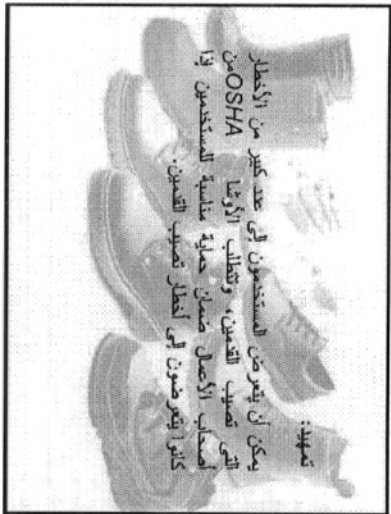 تمهيد:
يمكن أن يتعرض المستخدمون إلى عدد كبير من الأخطار
التي تصيب القدمين، وتتطلب الأوشا OSHA من
أصحاب الأعمال ضمان حماية مناسبة للمستخدمين إذا
كانوا يتعرضون إلى أخطار تصيب القدمين.